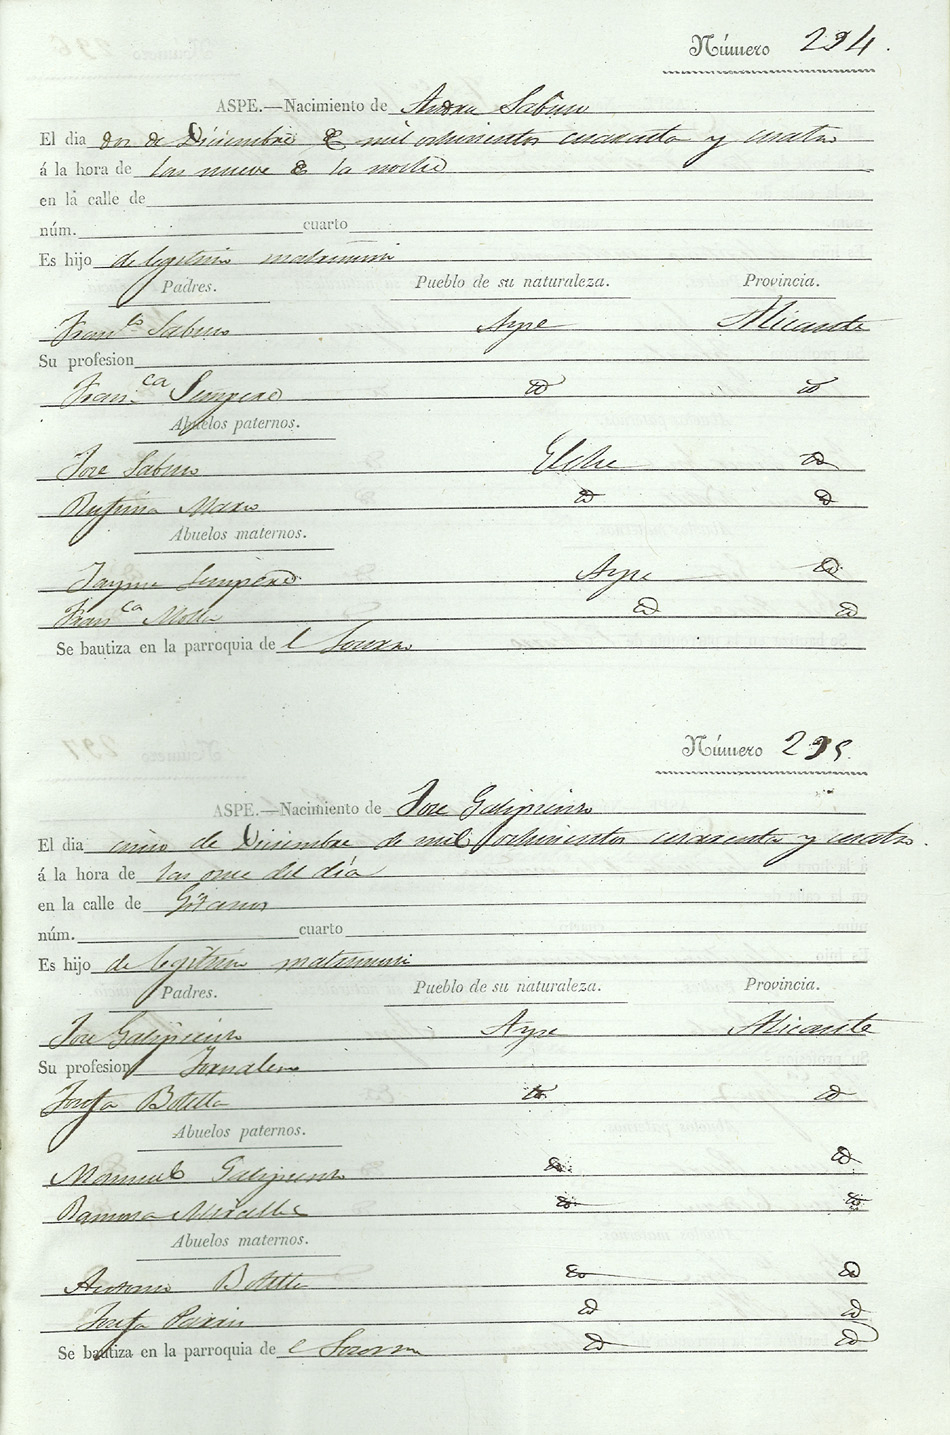 Número 294.
ASPE.—Nacimiento de Andres Sabuco
El dia dos de Diciembre de mil ochocientos cuarenta y cuatro
á la hora de las nueve de la noche
en la calle de
núm. cuarto
Es hijo de legitimo matrimonio
Padres. Pueblo de su naturaleza. Provincia.
Fran.co Sabuco Aspe Alicante
Su profesion
Fran.ca Sempere id id
Abuelos paternos.
Jose Sabuco Elche id
Rufina Marco id id
Abuelos maternos.
Jayme Sempere Aspe id
Fran.ca Molla id id
Se bautiza en la parroquia de el Socorro
Número 295.
ASPE.—Nacimiento de Jose Galipienso
El dia cinco de Diciembre de mil ochocientos cuarenta y cuatro.
á la hora de las once del día
en la calle de Gitanos
núm. cuarto
Es hijo de legitimo matrimonio
Padres. Pueblo de su naturaleza. Provincia.
Jose Galipienso Aspe Alicante
Su profesion Jornalero
Josefa Botella id id
Abuelos paternos.
Manuel Galipienso id id
Ramona Miralles id id
Abuelos maternos.
Antonio Botella id id
Josefa id id
Se bautiza en la parroquia de el Socorro id id